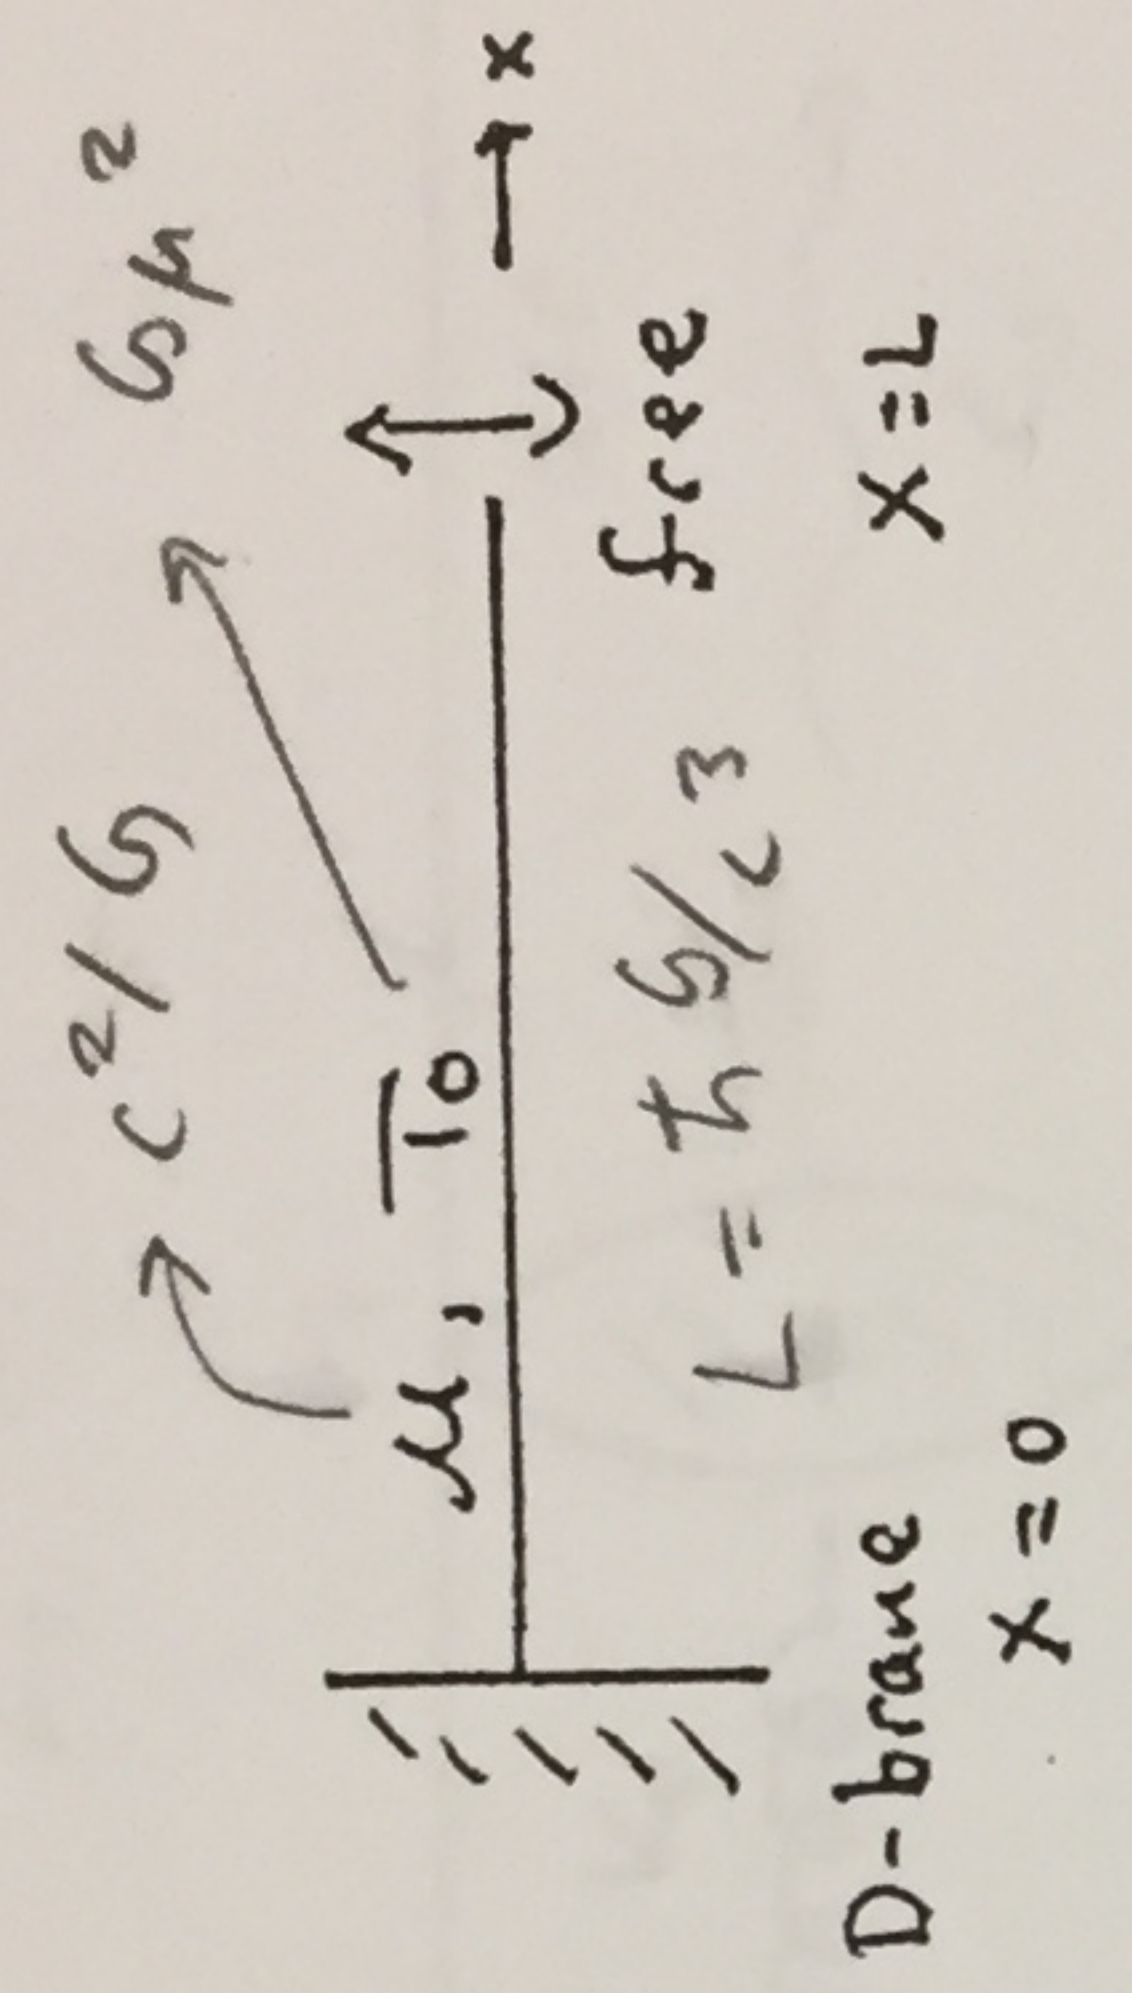 c²/G
Gμ²
μ, T₀
x
L = ħ G/c³
free
D-brane
x = 0
x = L